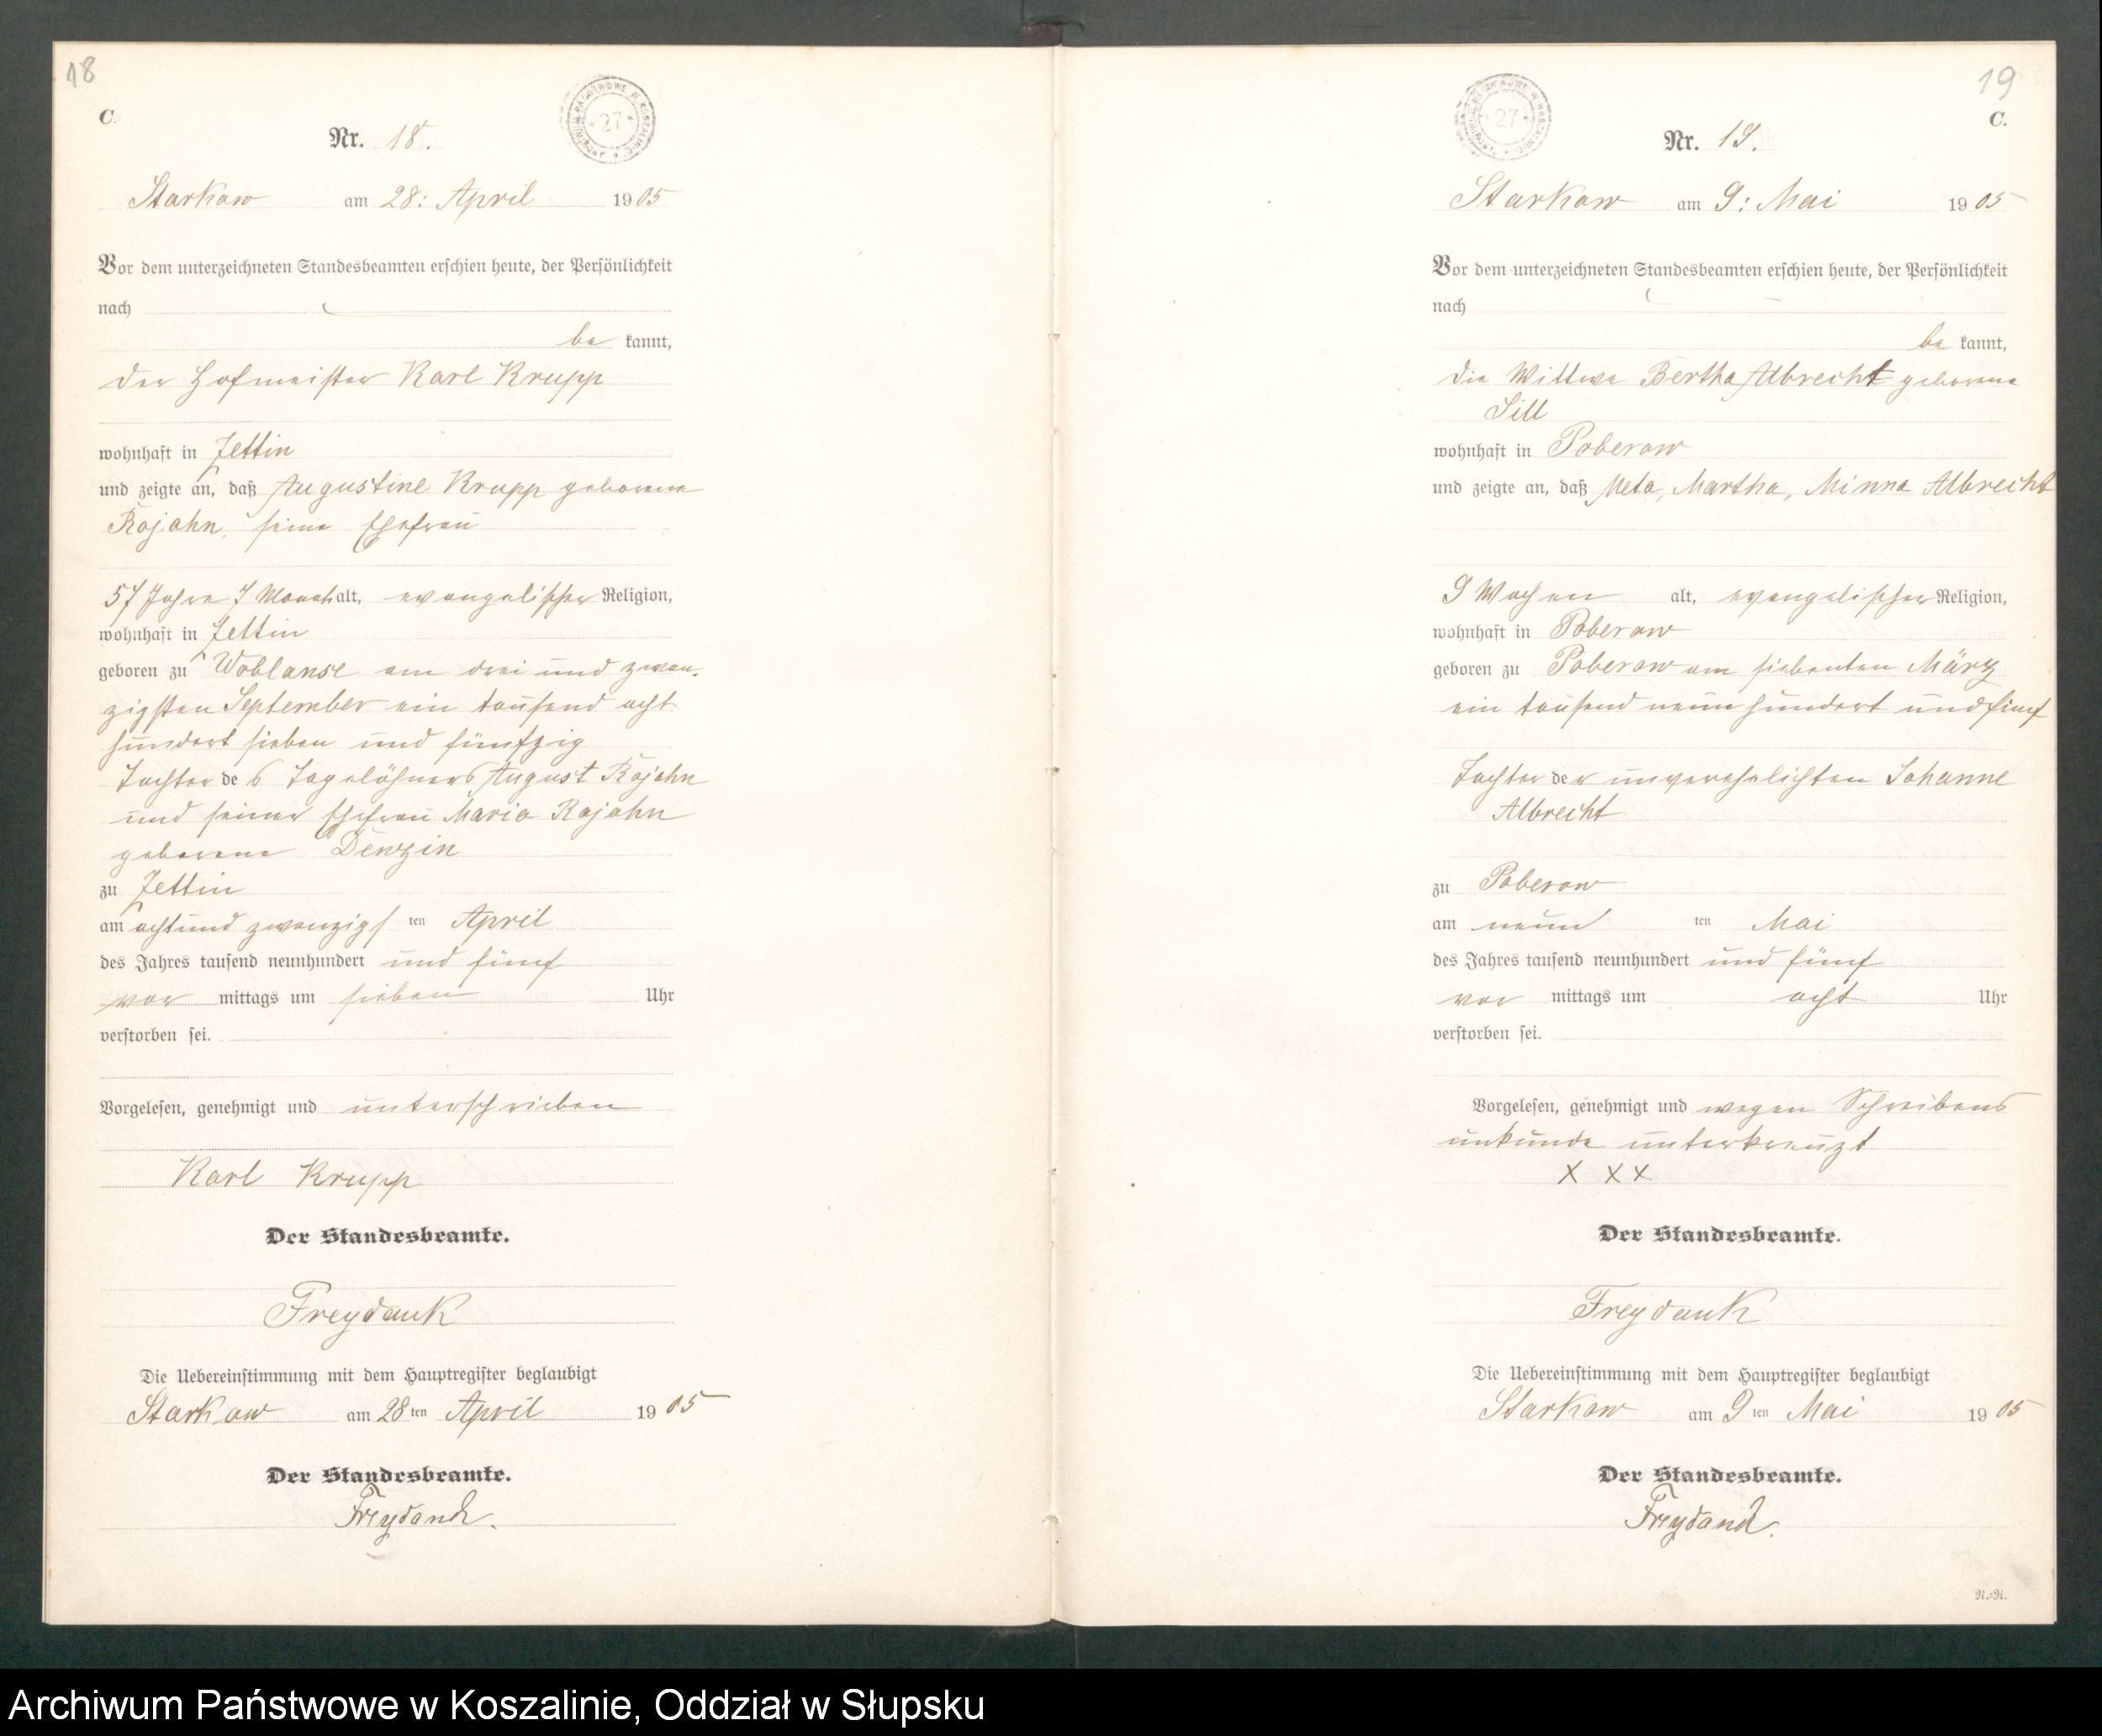 18
C.
Nr. 18.
Starkow am 28: April 1905
Vor dem unterzeichneten Standesbeamten erschien heute, der Persönlichkeit
nach
be kannt,
der Hofmeister Karl Krupp
wohnhaft in Jettin
und zeigte an, daß Augustine Krupp geborene
Rojahn, seine Ehefrau
57 Jahre 7 Monat alt, evangelischer Religion,
wohnhaft in Jettin
geboren zu Woblanse am drei und zwan-
zigsten September ein tausend acht
hundert sieben und fünfzig
Tochter des Tagelöhners August Rojahn
und seiner Ehefrau Maria Rojahn
geborene Denzin
zu Jettin
am achtund zwanzigsten April
des Jahres tausend neunhundert und fünf
vor mittags um sieben Uhr
verstorben sei.
Vorgelesen, genehmigt und unterschrieben
Karl Krupp
Der Standesbeamte.
Freydank
Die Uebereinstimmung mit dem Hauptregister beglaubigt
Starkow am 28ten April 1905
Der Standesbeamte.
Freydank.
19
C.
Nr. 19.
Starkow am 9: Mai 1905
Vor dem unterzeichneten Standesbeamten erschien heute, der Persönlichkeit
nach
be kannt,
die Wittwe Bertha Albrecht geborene
Sill
wohnhaft in Poberow
und zeigte an, daß Meta, Martha, Minna Albrecht
9 Wochen alt, evangelischer Religion,
wohnhaft in Poberow
geboren zu Poberow am siebenten März
ein tausend neun hundert und fünf
Tochter der unverehelichten Johanne
Albrecht
zu Poberow
am neun ten Mai
des Jahres tausend neunhundert und fünf
vor mittags um acht Uhr
verstorben sei.
Vorgelesen, genehmigt und wegen Schreibens
unkunde unterkreuzt
X X X
Der Standesbeamte.
Freydank
Die Uebereinstimmung mit dem Hauptregister beglaubigt
Starkow am 9ten Mai 1905
Der Standesbeamte.
Freydank.
N.=N.
Archiwum Państwowe w Koszalinie, Oddział w Słupsku